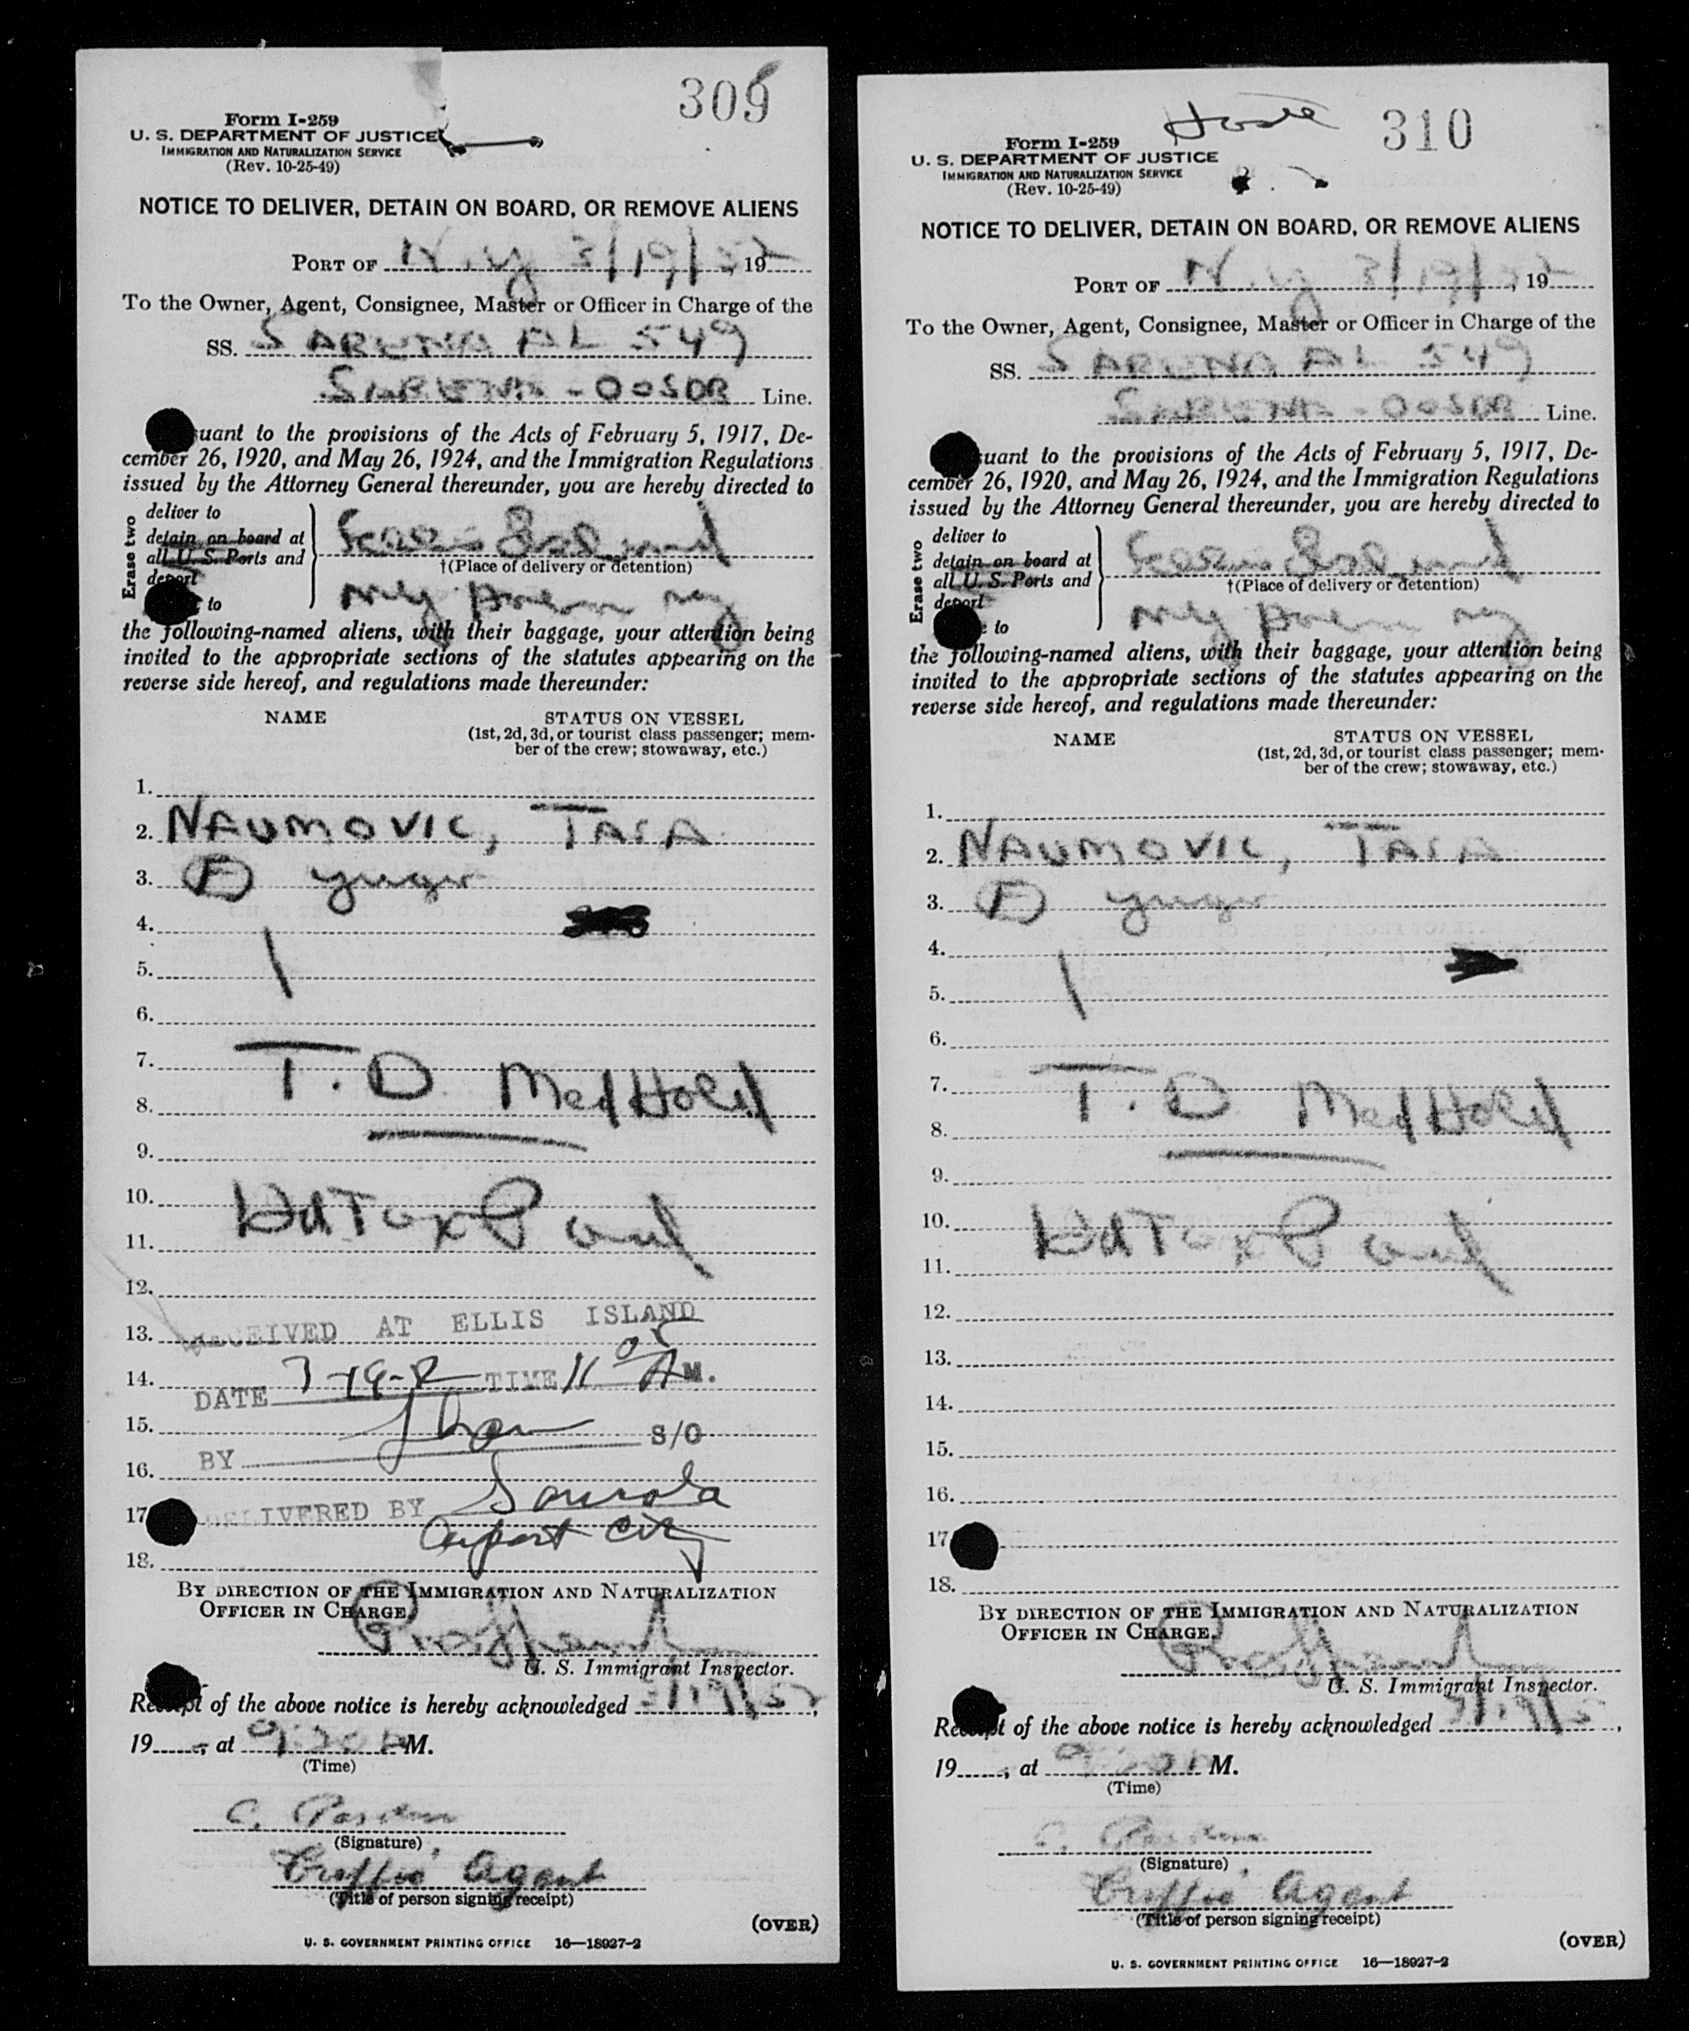 309
Form I-259
U. S. DEPARTMENT OF JUSTICE
IMMIGRATION AND NATURALIZATION SERVICE
(Rev. 10-25-49)
NOTICE TO DELIVER, DETAIN ON BOARD, OR REMOVE ALIENS
PORT OF N.Y 3/19/52, 19
To the Owner, Agent, Consignee, Master or Officer in Charge of the
SS. SABENA AL 549
SABENA - OOSDR Line.
uant to the provisions of the Acts of February 5, 1917, De-
cember 26, 1920, and May 26, 1924, and the Immigration Regulations
issued by the Attorney General thereunder, you are hereby directed to
Erase two
deliver to
detain on board at
all U. S. Ports and
deport
to
Ellis Island
†(Place of delivery or detention)
the following-named aliens, with their baggage, your attention being
invited to the appropriate sections of the statutes appearing on the
reverse side hereof, and regulations made thereunder:
NAME STATUS ON VESSEL
(1st, 2d, 3d, or tourist class passenger; mem-
ber of the crew; stowaway, etc.)
1.
2. NAUMOVIC, TASA
3. F yugo
4.
5. 1
6.
7. T. D
8. Med Hold
9.
10. Hd Tax Paid
11.
12.
13. RECEIVED AT ELLIS ISLAND
14. DATE TIME 11 05 A M.
15. S/O
BY
16.
17 DELIVERED BY
Airport City
18.
BY DIRECTION OF THE IMMIGRATION AND NATURALIZATION
OFFICER IN CHARGE.
U. S. Immigrant Inspector.
Receipt of the above notice is hereby acknowledged 3/19/52,
19, at 9:20 A M.
(Time)
C.
(Signature)
Traffic Agent
(Title of person signing receipt)
(OVER)
U. S. GOVERNMENT PRINTING OFFICE 16—18927-2
310
Form I-259
U. S. DEPARTMENT OF JUSTICE
IMMIGRATION AND NATURALIZATION SERVICE
(Rev. 10-25-49)
NOTICE TO DELIVER, DETAIN ON BOARD, OR REMOVE ALIENS
PORT OF N.Y 3/19/52, 19
To the Owner, Agent, Consignee, Master or Officer in Charge of the
SS. SABENA AL 549
SABENA - OOSDR Line.
uant to the provisions of the Acts of February 5, 1917, De-
cember 26, 1920, and May 26, 1924, and the Immigration Regulations
issued by the Attorney General thereunder, you are hereby directed to
Erase two
deliver to
detain on board at
all U. S. Ports and
deport
to
Ellis Island
†(Place of delivery or detention)
the following-named aliens, with their baggage, your attention being
invited to the appropriate sections of the statutes appearing on the
reverse side hereof, and regulations made thereunder:
NAME STATUS ON VESSEL
(1st, 2d, 3d, or tourist class passenger; mem-
ber of the crew; stowaway, etc.)
1.
2. NAUMOVIC, TASA
3. F yugo
4.
5. 1
6.
7. T. D
8. Med Hold
9.
10. Hd Tax Paid
11.
12.
13.
14.
15.
16.
17
18.
BY DIRECTION OF THE IMMIGRATION AND NATURALIZATION
OFFICER IN CHARGE.
U. S. Immigrant Inspector.
Receipt of the above notice is hereby acknowledged 3/19/5,
19, at 9:20 M.
(Time)
C.
(Signature)
Traffic Agent
(Title of person signing receipt)
(OVER)
U. S. GOVERNMENT PRINTING OFFICE 16—18927-2